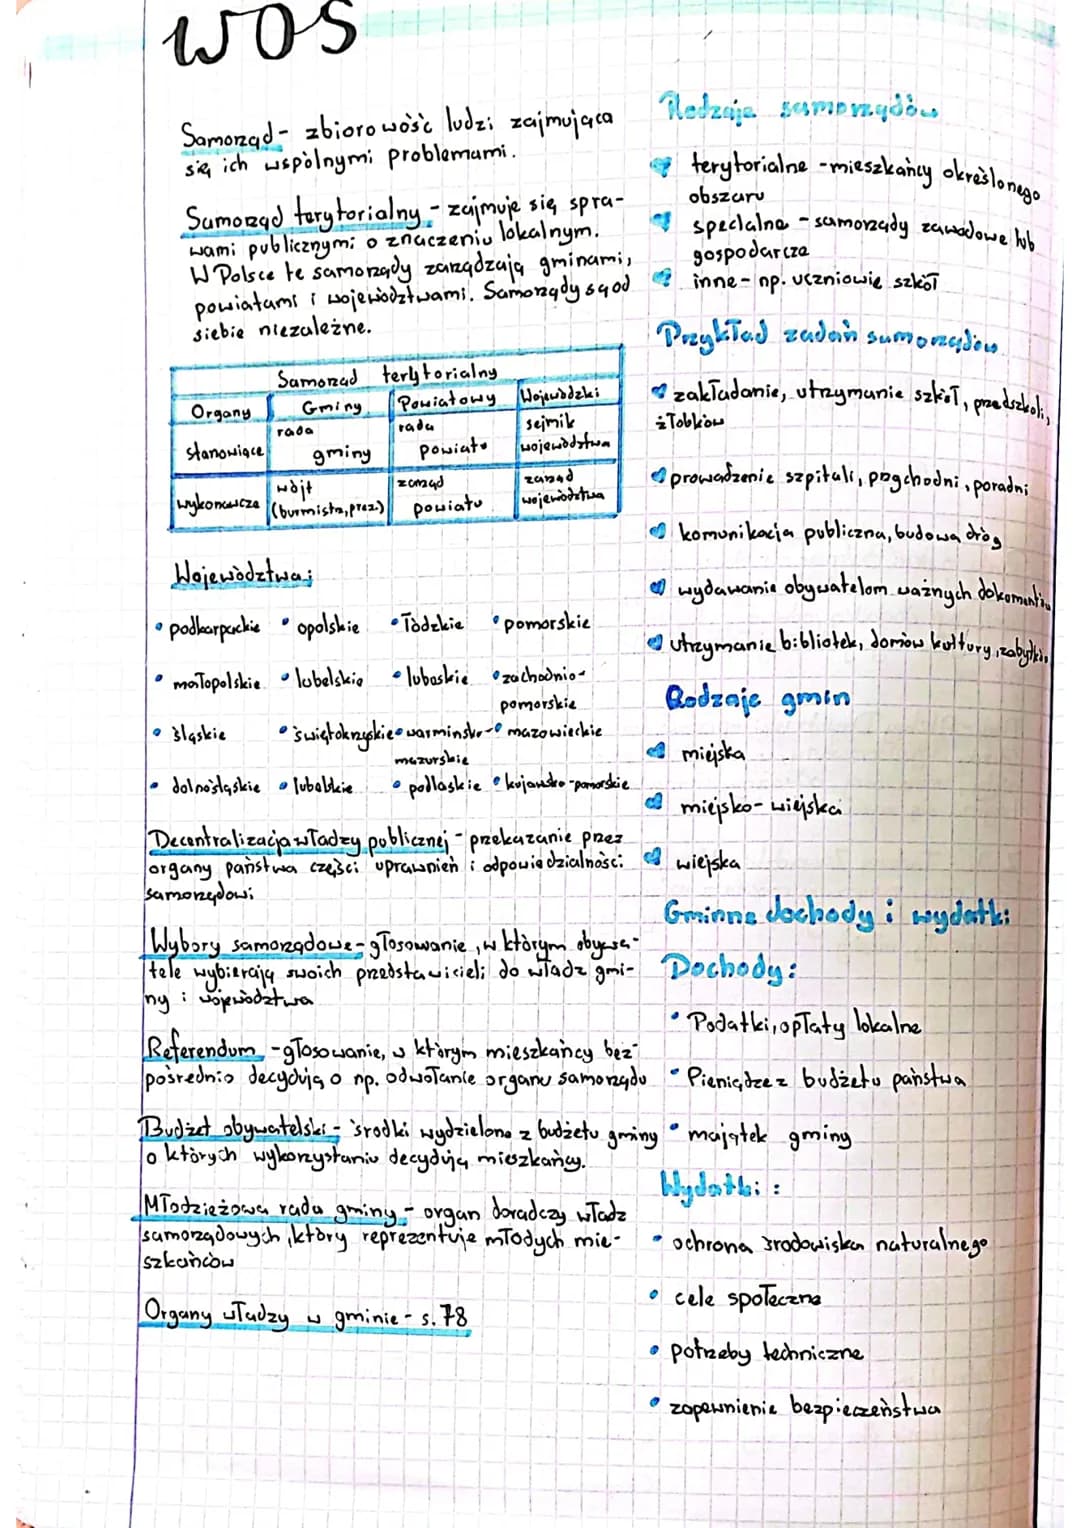 WOS
Samorząd - zbiorowość ludzi zajmująca
się ich wspólnymi problemami.
Samorząd terytorialny - zajmuje się spra-
wami publicznymi o znaczeniu lokalnym.
W Polsce te samorządy zarządzają gminami,
powiatami i województwami. Samorządy są od
siebie niezależne.
Samorząd terytorialny
Organy Gminy Powiatowy Wojewódzki
stanowiące rada gminy rada powiatu sejmik województwa
wykonawcze wójt (burmistrz, prez.) zarząd powiatu zarząd województwa
Województwa:
• podkarpackie • opolskie • łódzkie • pomorskie
• małopolskie • lubelskie • lubuskie • zachodnio-
pomorskie
• śląskie • świętokrzyskie • warminsko- • mazowieckie
mazurskie
• dolnośląskie • lubelskie • podlaskie • kujawsko-pomorskie
Decentralizacja władzy publicznej - przekazanie przez
organy państwa części uprawnień i odpowiedzialności
samorządowi
Wybory samorządowe - głosowanie, w którym obywa-
tele wybierają swoich przedstawicieli do władz gmi-
ny i województwa
Referendum - głosowanie, w którym mieszkańcy bez-
pośrednio decydują o np. odwołanie organu samorządu
Budżet obywatelski - środki wydzielone z budżetu gminy
o których wykorzystaniu decydują mieszkańcy.
Młodzieżowa rada gminy - organ doradczy władz
samorządowych, który reprezentuje młodych mie-
szkańców
Organy władzy w gminie - s. 78
Rodzaje samorządów
terytorialne - mieszkańcy określonego
obszaru
specjalne - samorządy zawodowe lub
gospodarcze
inne - np. uczniowie szkół
Przykład zadań samorządów
zakładanie, utrzymanie szkół, przedszkoli,
żłobków
prowadzenie szpitali, przychodni, poradni
komunikacja publiczna, budowa dróg
wydawanie obywatelom ważnych dokumentów
utrzymanie bibliotek, domów kultury, zabytków
Rodzaje gmin
miejska
miejsko-wiejska
wiejska
Gminne dochody i wydatki
Dochody:
• Podatki, opłaty lokalne
• Pieniądze z budżetu państwa
• majątek gminy
Wydatki:
• ochrona środowiska naturalnego
• cele społeczne
• potrzeby techniczne
• zapewnienie bezpieczeństwa